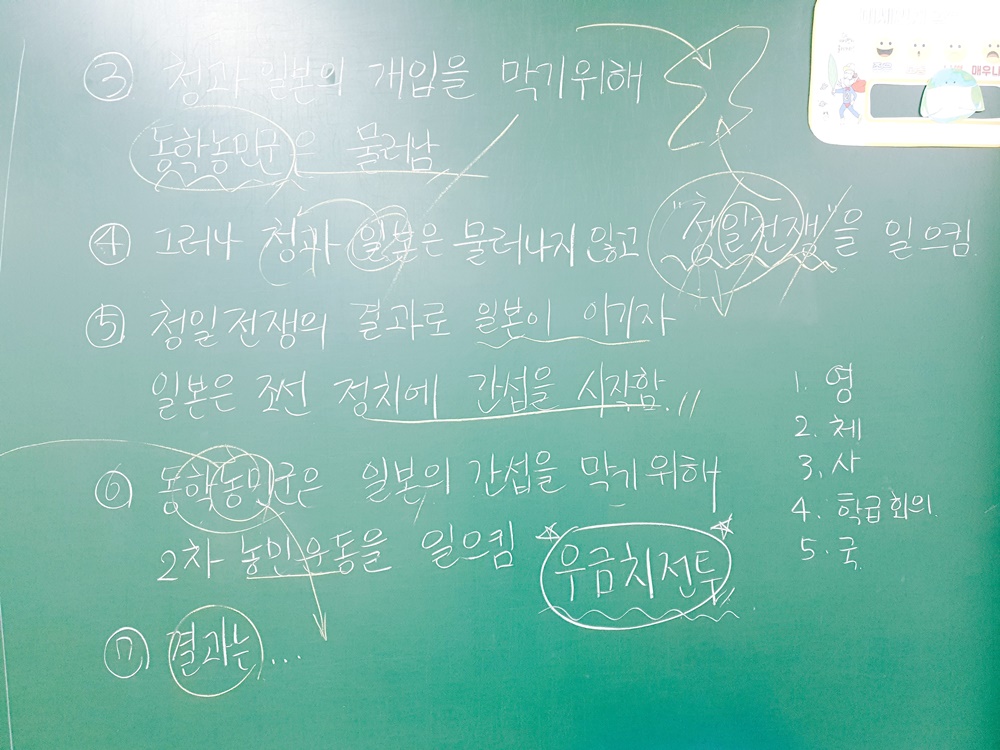 ③ 청과 일본의 개입을 막기위해
동학농민군은 물러남
④ 그러나 청과 일본은 물러나지 않고 "청일전쟁"을 일으킴
⑤ 청일전쟁의 결과로 일본이 이기자
일본은 조선 정치에 간섭을 시작함.
⑥ 동학농민군은 일본의 간섭을 막기위해
2차 농민운동을 일으킴
우금치전투
⑦ 결과는...
1. 영
2. 체
3. 사
4. 학급회의
5. 국
매우나